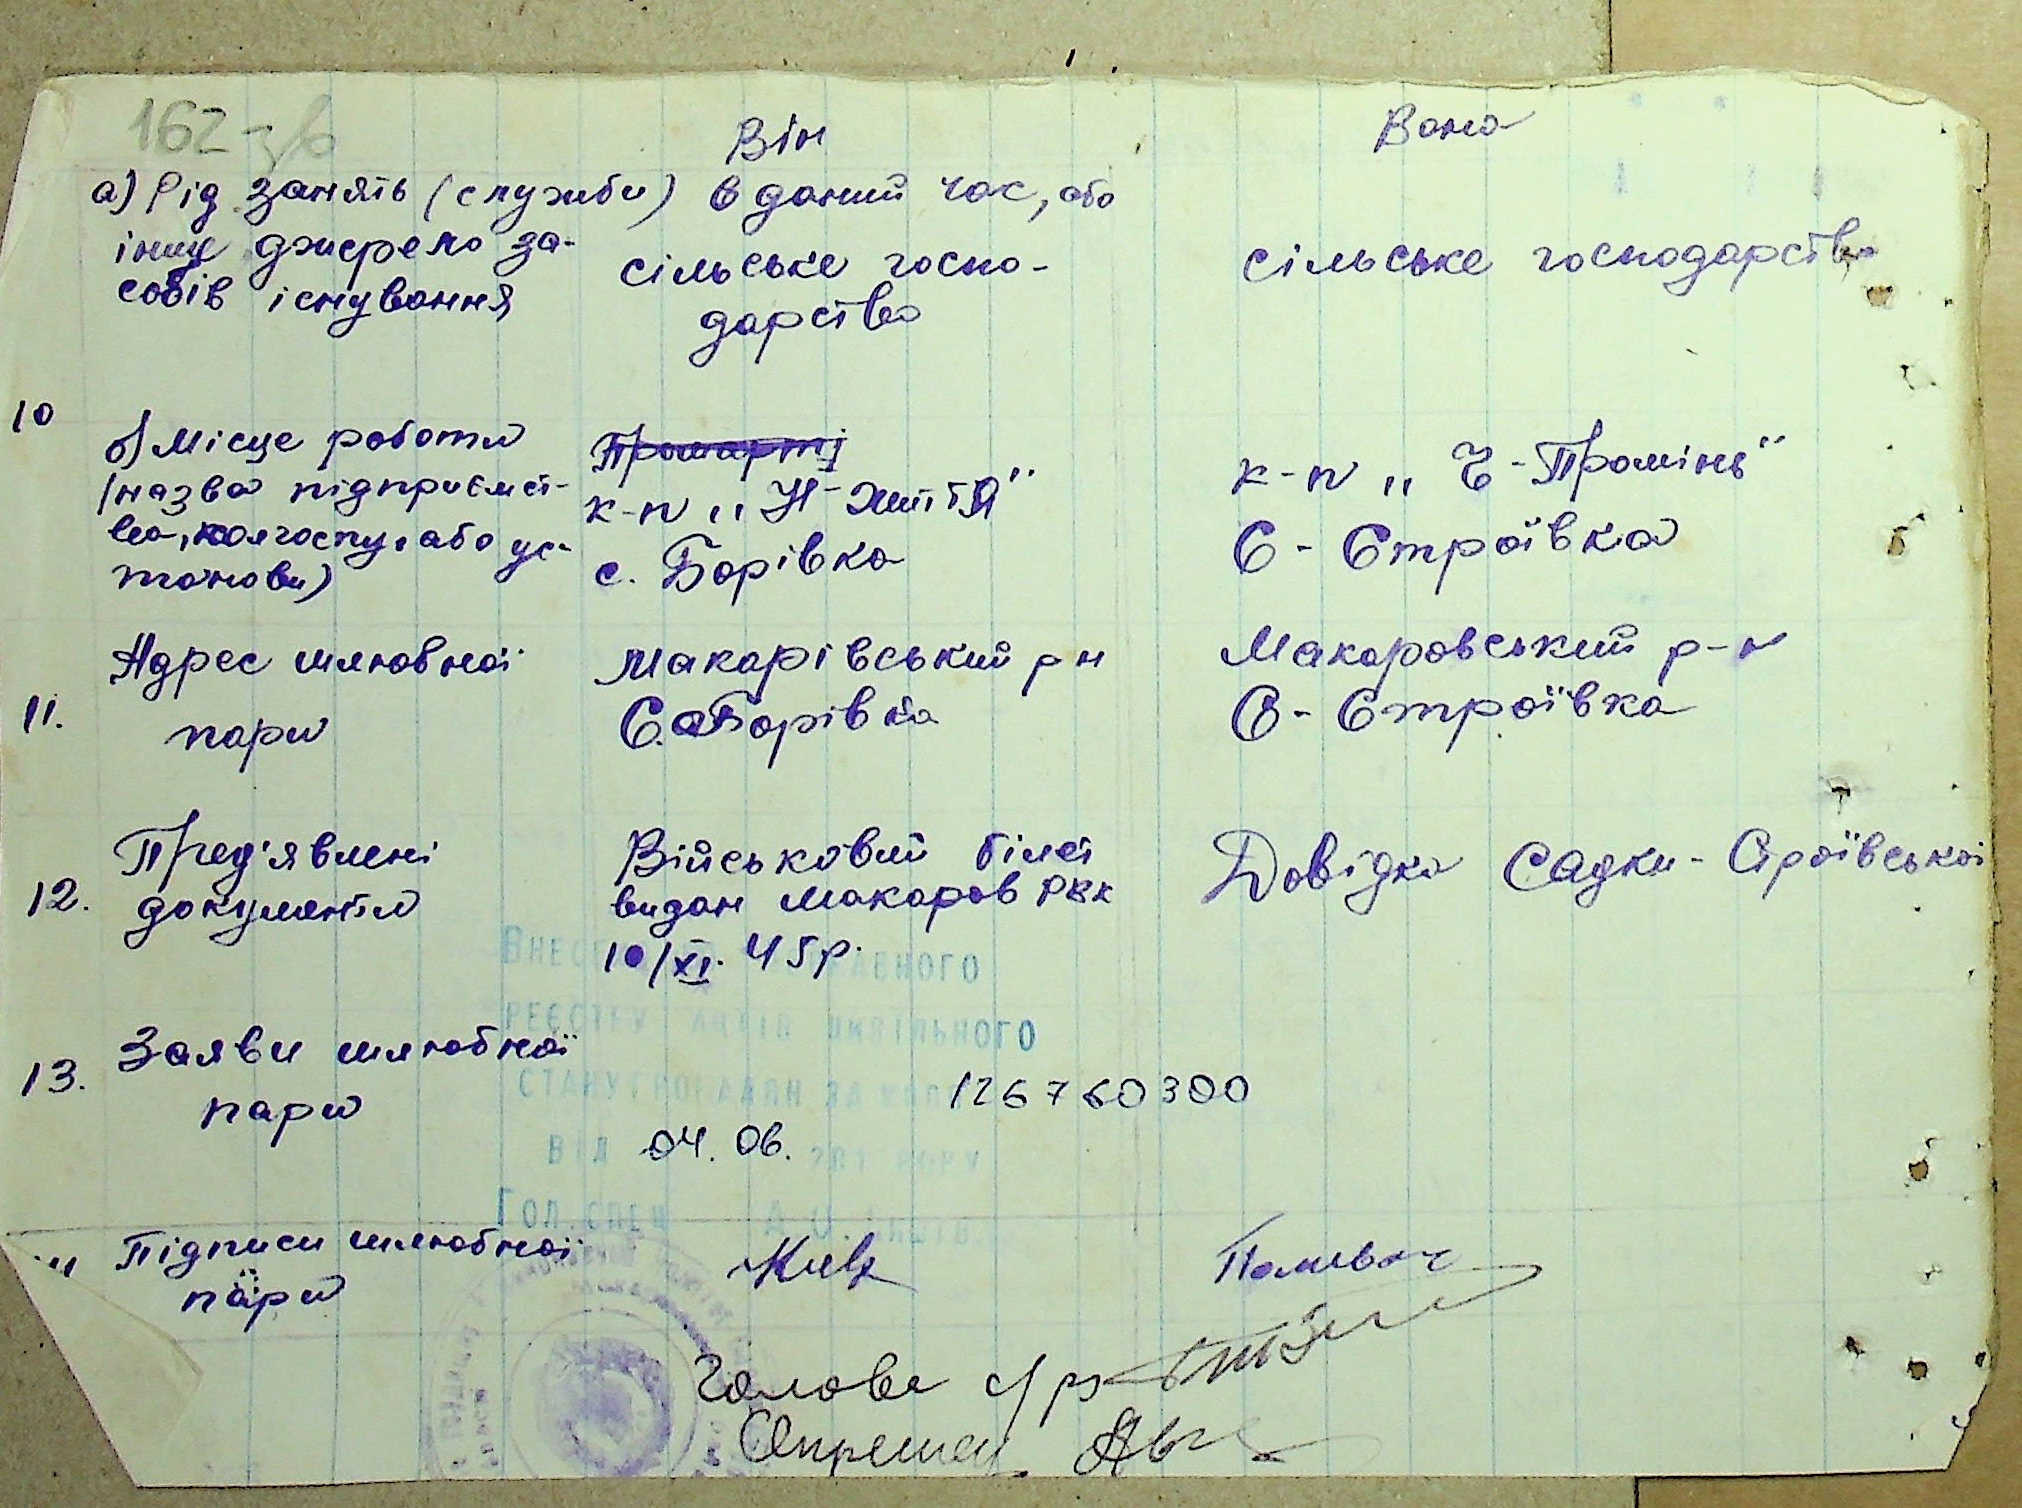 162 зв
Він Вона
а) Рід занять (служби) в даний час, або
інше джерело за-
собів існування
сільське госпо-
дарство
сільське господарство
10
б) Місце роботи
(назва підприємст-
ва, колгоспу, або ус-
танови)
Промарті
к-п „Н-життя"
с. Борівка
к-п „Ч-Промінь"
С-Строївка
11. Адрес шлюбної
пари
Макарівський рн
С. Борівка
Макаровський р-н
С-Строївка
12. Пред'явлені
документи
Військовий білет
видан Макаров РВК
10/XI. 45р.
Довідка Садки-Строївської
13. Заяви шлюбної
пари
Внесено до Державного
реєстру актів цивільного
стану громадян за
126760300
від 04. 06. 201 року
Гол. спец
Підписи шлюбної
пари
Полівач
Голова с/р